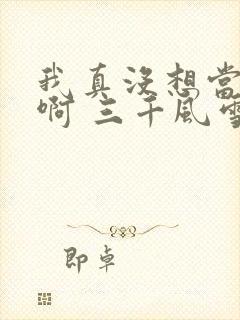 我真没想当
啊 三千风雪
即卓